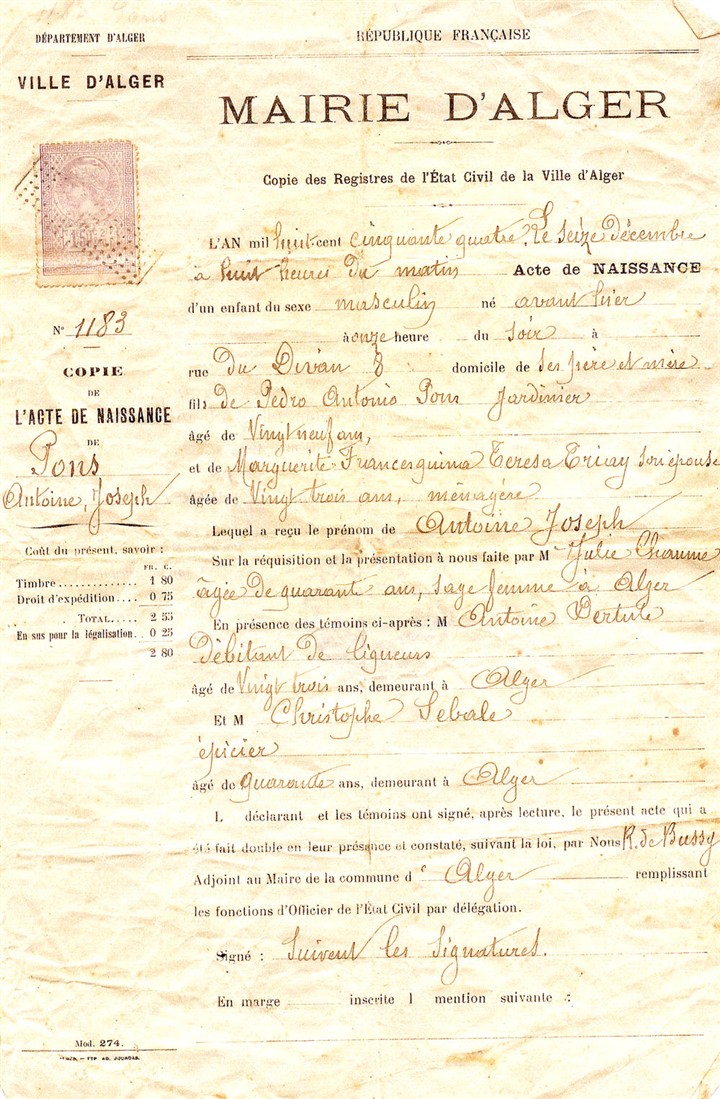 DÉPARTEMENT D'ALGER
VILLE D'ALGER
1.50
N° 1183
COPIE
DE
L'ACTE DE NAISSANCE
DE
Pons
Antoine, Joseph
Coût du présent, savoir :
FR. C.
Timbre............. 1 80
Droit d'expédition.... 0 75
TOTAL..... 2 55
En sus pour la légalisation.. 0 25
2 80
Mod. 274.
RÉPUBLIQUE FRANÇAISE
MAIRIE D'ALGER
Copie des Registres de l'État Civil de la Ville d'Alger
L'AN mil huit cent cinquante quatre, Le seize décembre
à huit heures du matin Acte de NAISSANCE
d'un enfant du sexe masculin né avant hier
à onze heure du soir à
rue du Divan 8 domicile de ses père et mère
fils de Pedro Antonio Pons jardinier
âgé de Vingt neuf ans,
et de Marguerite Francesquina Teresa Triay son épouse
âgée de Vingt trois ans, ménagère
Lequel a reçu le prénom de Antoine Joseph
Sur la réquisition et la présentation à nous faite par M Julie Chaume
âgée de quarante ans, sage femme à Alger
En présence des témoins ci-après : M Antoine
Débitant de liqueurs
âgé de Vingt trois ans, demeurant à Alger
Et M Christophe Sebale
épicier
âgé de quarante ans, demeurant à Alger
L déclarant et les témoins ont signé, après lecture, le présent acte qui a
été fait double en leur présence et constaté, suivant la loi, par Nous R. de Bussy
Adjoint au Maire de la commune d' Alger remplissant
les fonctions d'Officier de l'État Civil par délégation.
Signé : Suivent les signatures.
En marge inscrite l mention suivante :